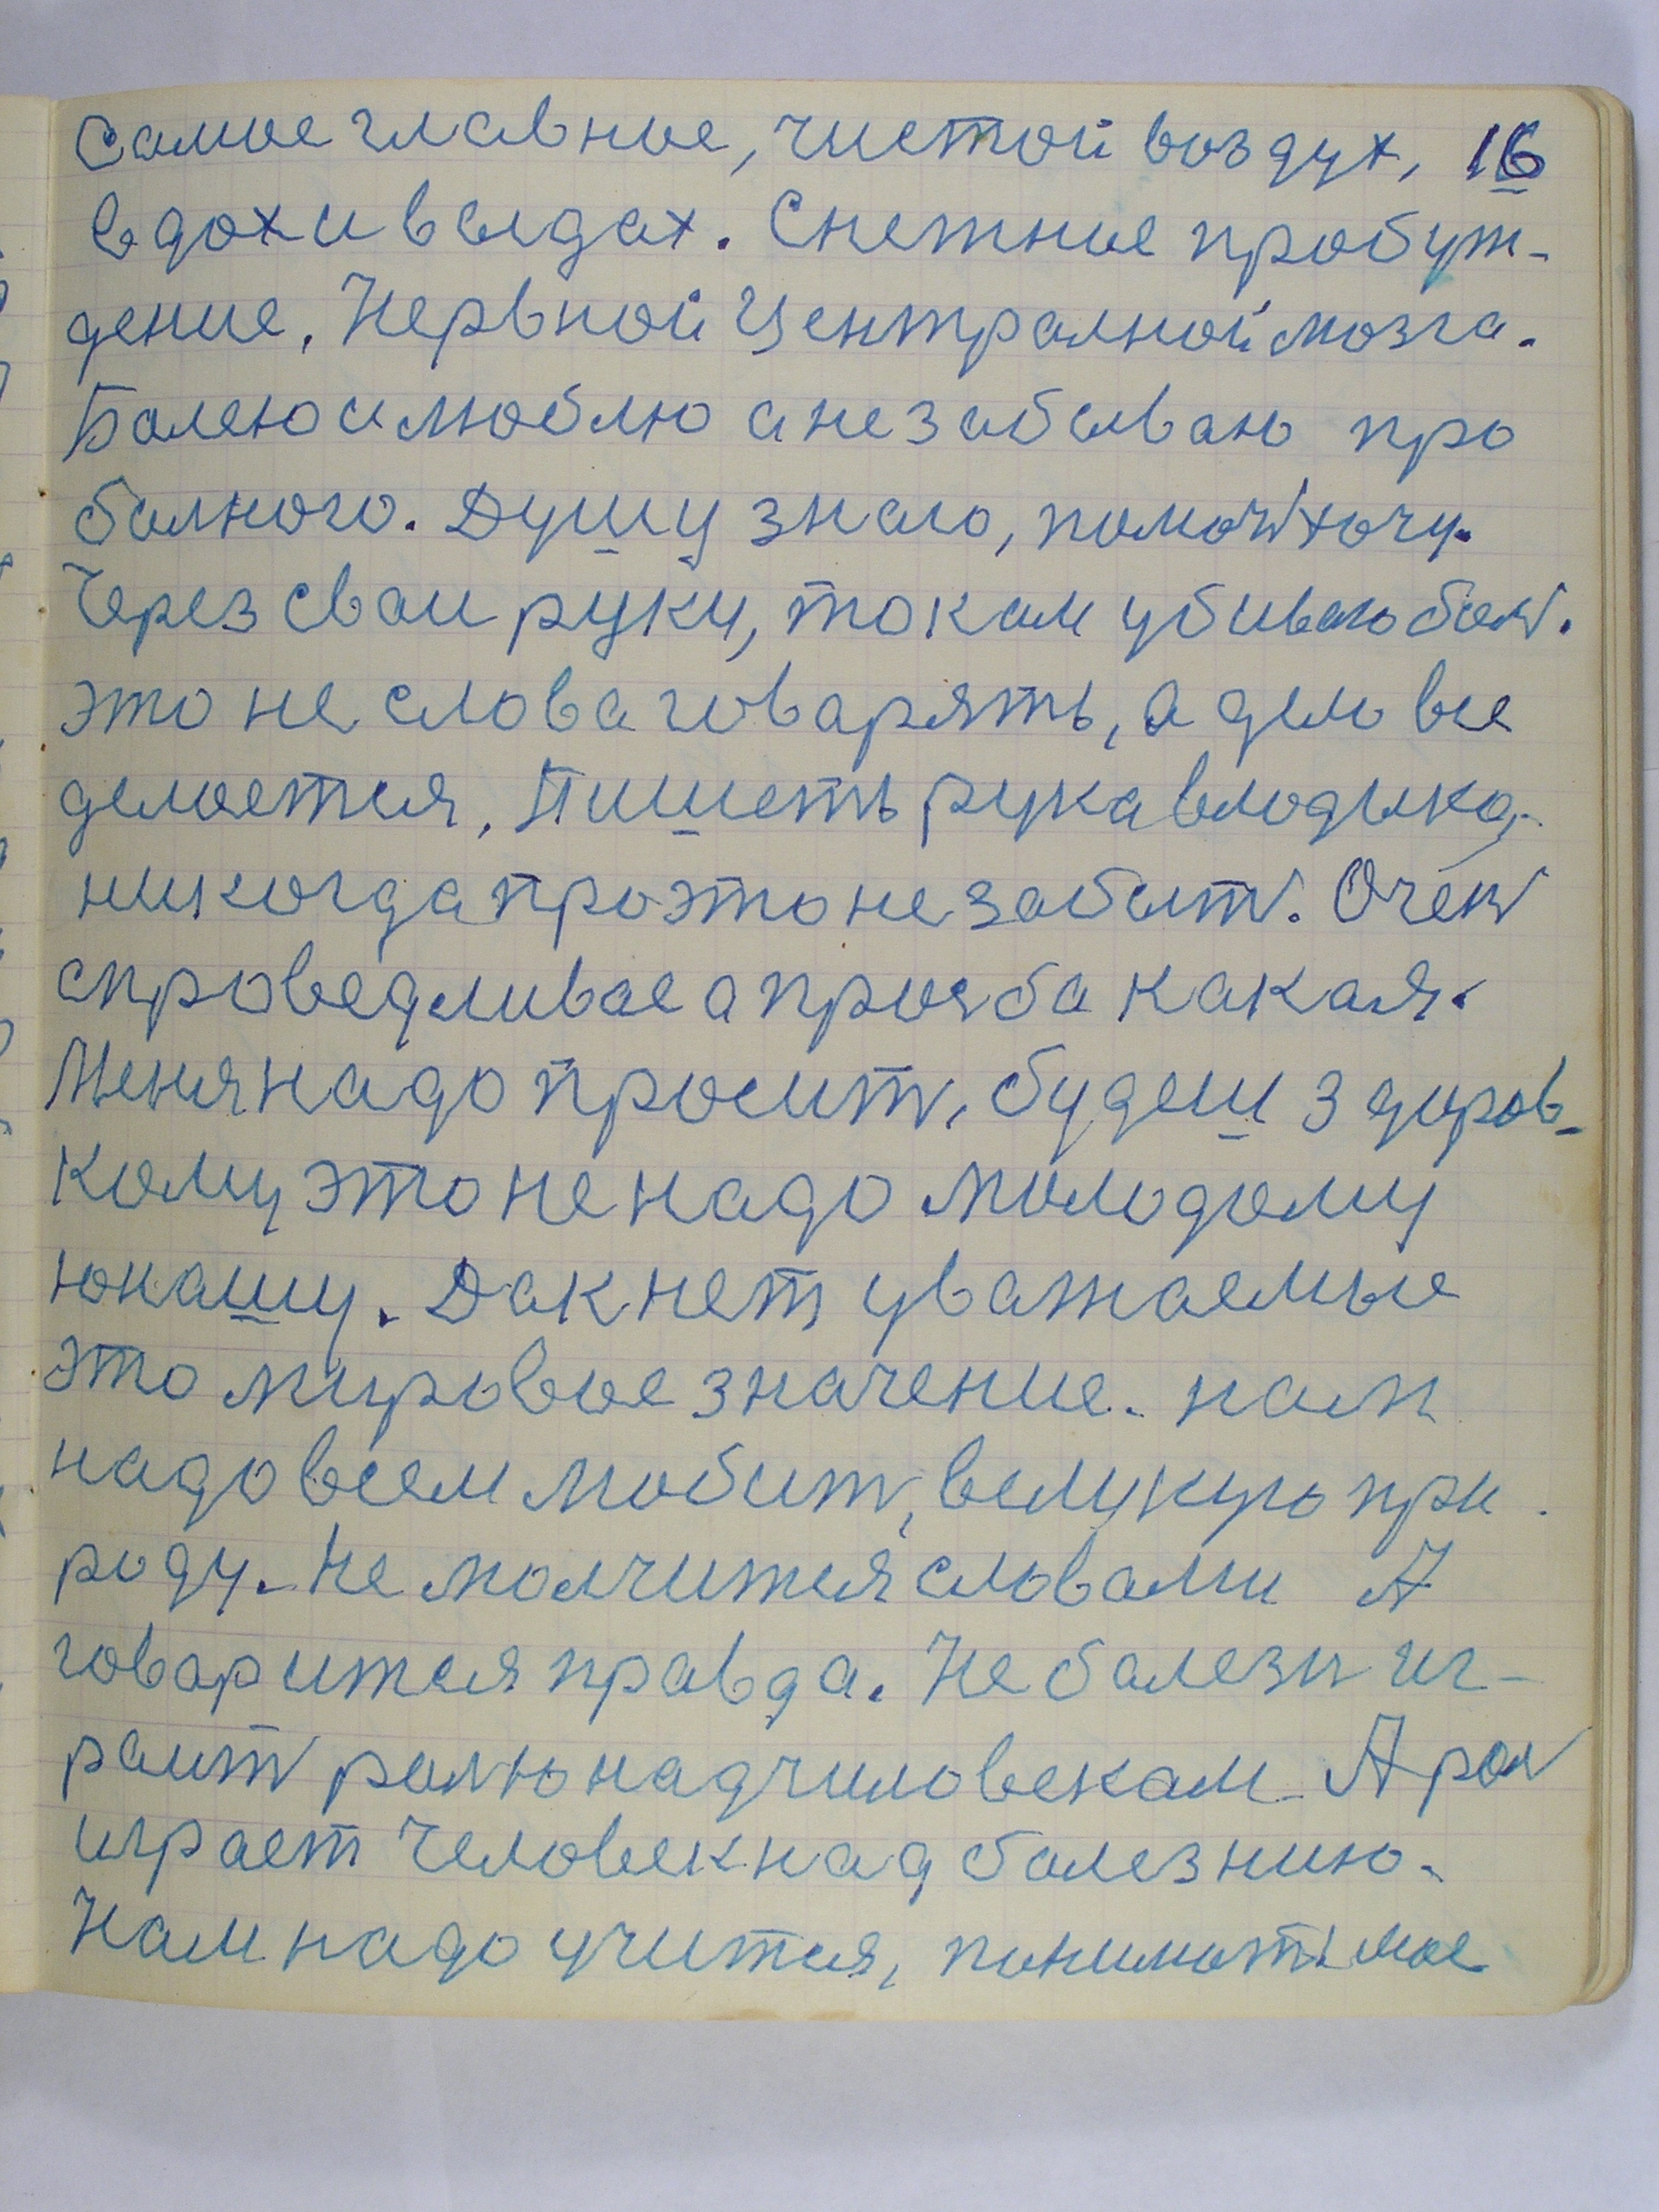 Самое главное, чистой воздух, 16
вдох и выдах. Снетные пробут-
дение, Нервной Централной мозга.
Болею и люблю а не забываю про
болного. Душу знаю, помочь хочу.
Через сваи руки, током убиваю боль.
Это не слова говарять, а дело все
делается, Пишеть рука влодыко,
никогда про это не забыть. Очень
справедливае а прозба какая.
Меня надо просить, будеш здоров-
кому это не надо молодому
юнашу. Дак нет уважаемые
это мировое значение. нам
надо всем любить, великую при
роду. Не молчится словами А
говарится правда. Не болезн иг-
раить ролю над чиловекам А рол
играет Человек над болезнию.
Нам надо учится, понимать мое